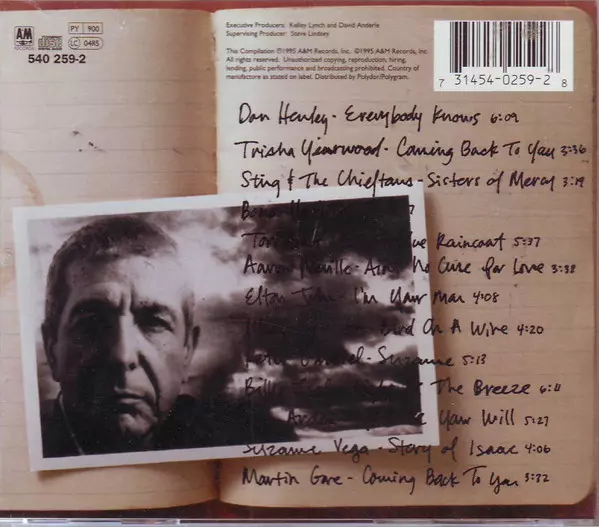 A&M RECORDS
COMPACT disc DIGITAL AUDIO
PY 900
LC 0485
540 259-2
Executive Producers: Kelley Lynch and David Anderle
Supervising Producer: Steve Lindsey
This Compilation ℗1995 A&M Records, Inc. ©1995 A&M Records, Inc.
All rights reserved. Unauthorized copying, reproduction, hiring,
lending, public performance and broadcasting prohibited. Country of
manufacture as stated on label. Distributed by Polydor/Polygram.
7 31454-0259-2 8
Don Henley - Everybody Knows 6:09
Trisha Yearwood - Coming Back To You 3:36
Sting & The Chieftans - Sisters of Mercy 3:19
Bono
Tori Raincoat 5:37
Aaron Neville - Ain't No Cure for Love 3:38
Elton John - I'm Your Man 4:08
Bird On A Wire 4:20
Peter Gabriel - Suzanne 5:13
Billy The Breeze 6:11
Your Will 5:27
Suzanne Vega - Story of Isaac 4:06
Martin Gore - Coming Back To You 3:22